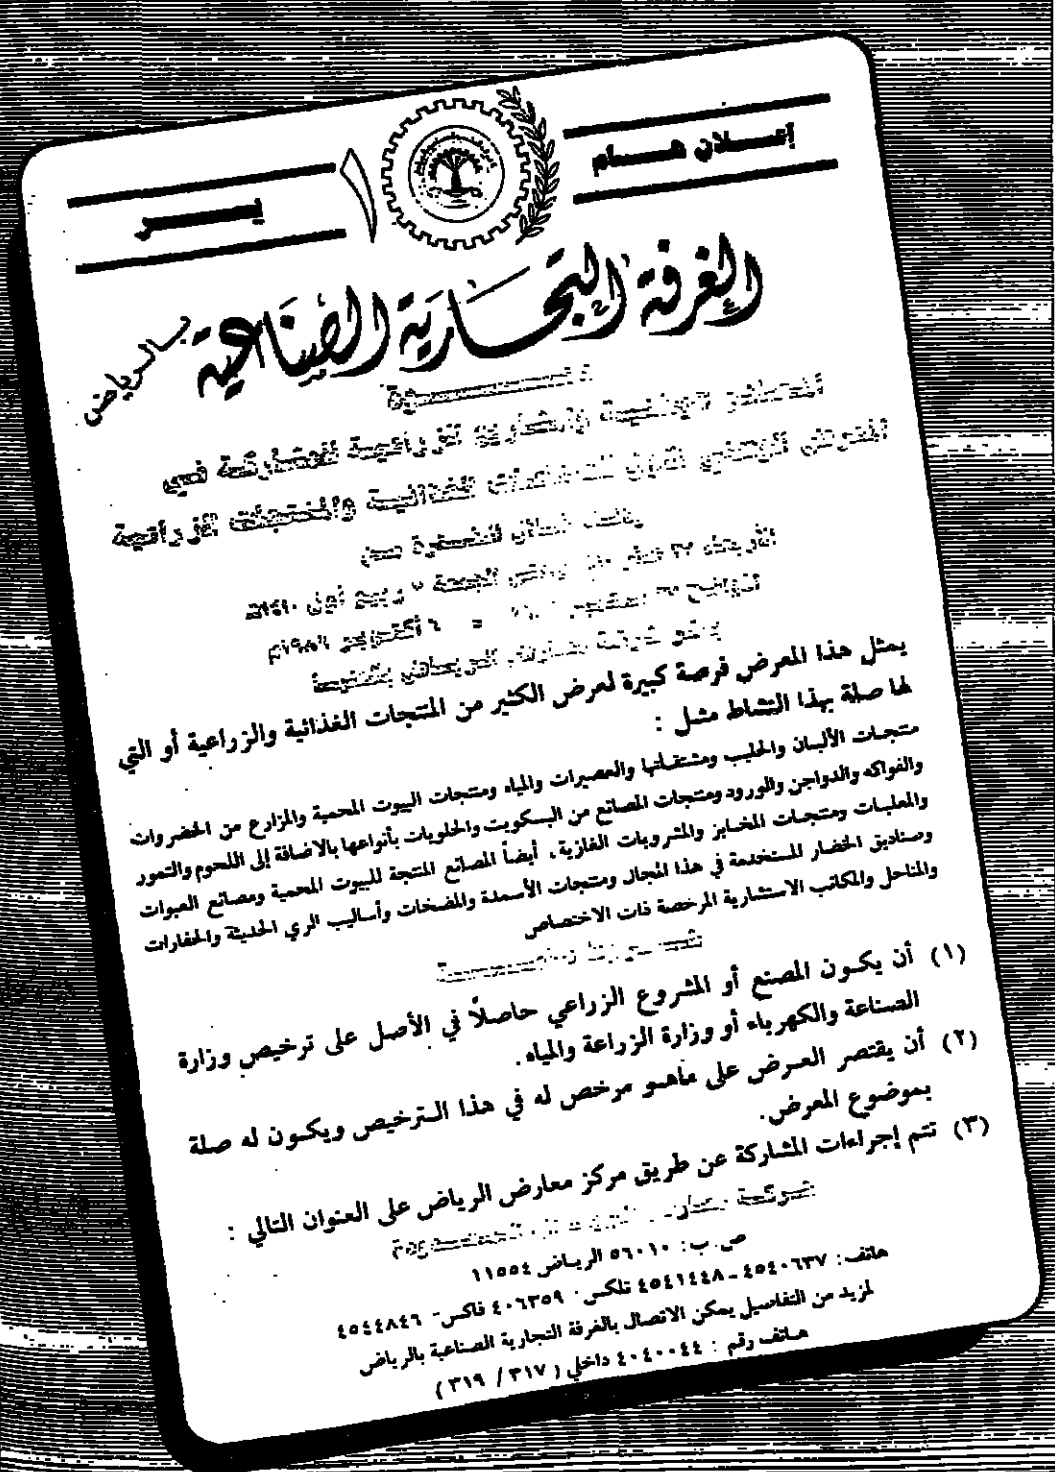 إعــلان هــام
يســر
الغرفة التجارية الصناعية
بالرياض
دعــوة
المصانع الوطنية والمشاريع الزراعية للمشاركة في
المعرض الوطني الغذائية والمنتجات الزراعية
خلال الفترة من
الجمعة ربيع أول ١٤١٠هـ
٦ أكتوبر ١٩٨٩م
يمثل هذا المعرض فرصة كبيرة لعرض الكثير من المنتجات الغذائية والزراعية أو التي
لها صلة بهذا النشاط مثـل :
منتجـات الألبـان والحليب ومشتقـاتها والعصيرات والمياه ومنتجات البيوت المحمية والمزارع من الخضروات
والفواكه والدواجن والورود ومنتجات المصانع من البسكويت والحلويات بأنواعها بالاضافة إلى اللحوم والتمور
والمعلبـات ومنتجـات المخـابز والمشروبات الغازية، أيضاً المصانع المنتجة للبيوت المحمية ومصانع العبوات
وصناديق الخضار المستخدمة في هذا المجال ومنتجات الأسمدة والمضخات وأساليب الري الحديثة والحفارات
والمناحل والمكاتب الاستشارية المرخصة ذات الاختصاص
(١) أن يكـون المصنع أو المشروع الزراعي حاصلاً في الأصل على ترخيص وزارة
الصناعة والكهرباء أو وزارة الزراعة والمياه .
(٢) أن يقتصر العـرض على ماهـو مرخص له في هذا الـترخيص ويكـون له صلة
بموضوع المعرض.
(٣) تتم إجراءات المشاركة عن طريق مركز معارض الرياض على العنوان التالي :
شركة معارض الرياض المحدودة
ص. ب: ٥٦٠١٠ الريـاض ١١٥٥٤
هاتف: ٤٥٤٠٦٣٧ - ٤٥٤١٤٤٨ تلكس: ٤٠٦٣٥٩ فاكس- ٤٥٤٤٨٤٦
لمزيد من التفاصيل يمكن الاتصال بالغرفة التجارية الصناعية بالرياض
هـاتف رقم : ٤٠٤٠٠٤٤ داخلي ( ٣١٧ / ٣١٩ )